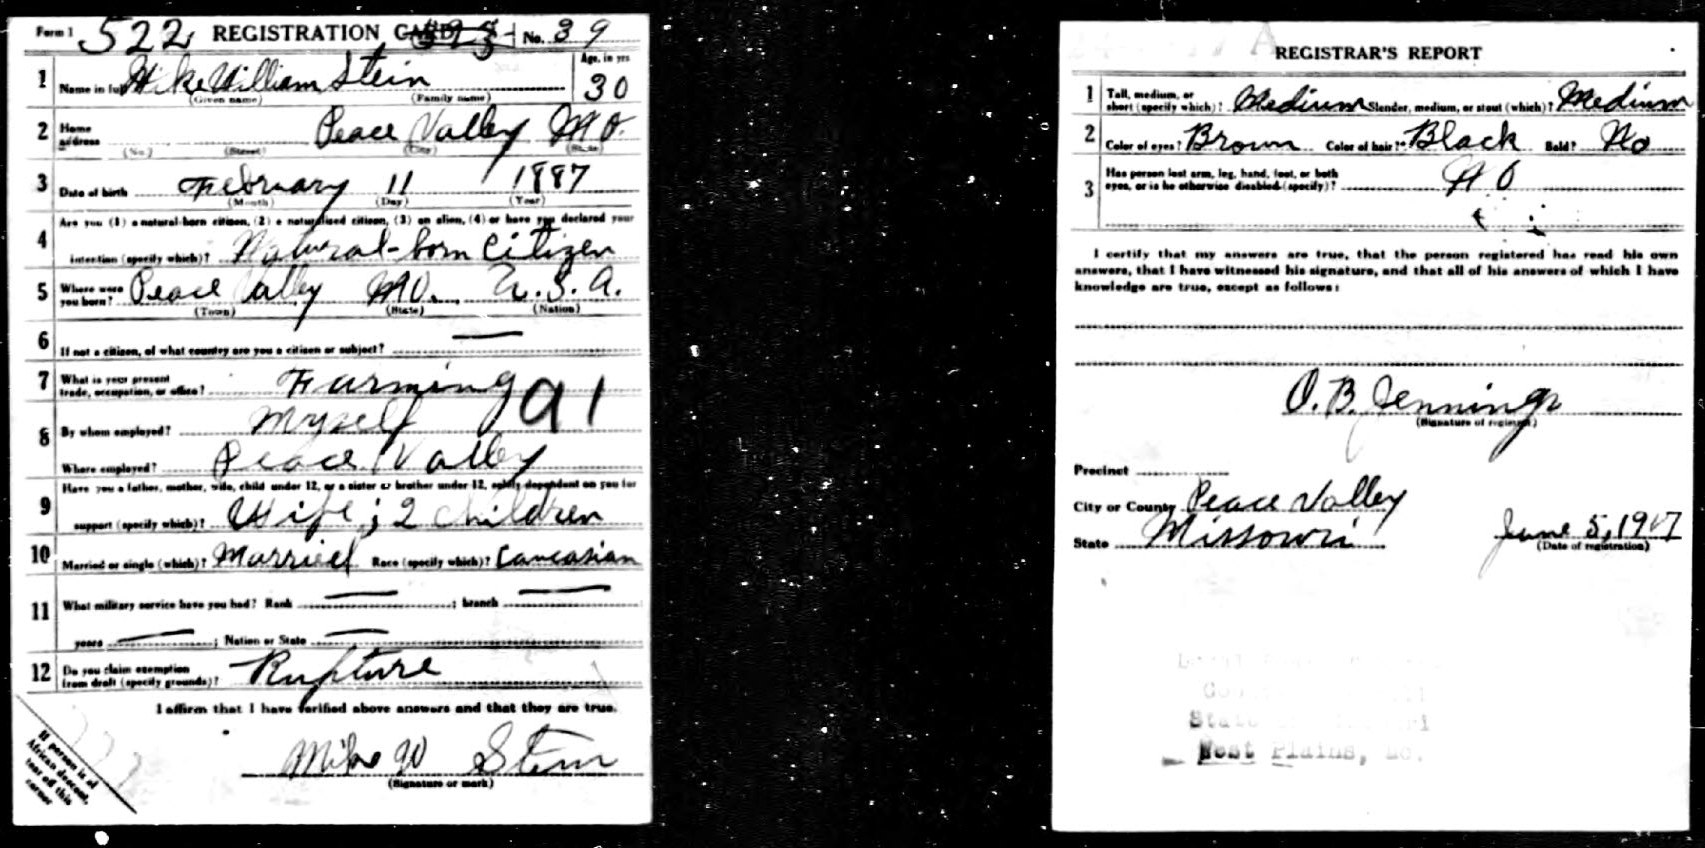 Form 1 522 REGISTRATION CARD No. 39
1 Name in full Mike William Stein Age, in yrs 30
(Given name) (Family name)
2 Home address Peace Valley Mo.
(No.) (Street) (City) (State)
3 Date of birth February 11 1887
(Month) (Day) (Year)
4 Are you (1) a natural-born citizen, (2) a naturalized citizen, (3) an alien, (4) or have you declared your
intention (specify which)? Natural-born citizen
5 Where were you born? Peace Valley Mo. U.S.A.
(Town) (State) (Nation)
6 If not a citizen, of what country are you a citizen or subject? —
7 What is your present trade, occupation, or office? Farming 91
8 By whom employed? Myself
Where employed? Peace Valley
9 Have you a father, mother, wife, child under 12, or a sister or brother under 12, solely dependent on you for
support (specify which)? Wife; 2 children
10 Married or single (which)? Married Race (specify which)? Caucasian
11 What military service have you had? Rank — ; branch —
years — ; Nation or State —
12 Do you claim exemption from draft (specify grounds)? Rupture
I affirm that I have verified above answers and that they are true.
Mike W Stein
(Signature or mark)
If person is of
African descent,
tear off this
corner
REGISTRAR'S REPORT
1 Tall, medium, or short (specify which)? Medium Slender, medium, or stout (which)? Medium
2 Color of eyes? Brown Color of hair? Black Bald? No
3 Has person lost arm, leg, hand, foot, or both eyes, or is he otherwise disabled (specify)? No
I certify that my answers are true, that the person registered has read his own
answers, that I have witnessed his signature, and that all of his answers of which I have
knowledge are true, except as follows:
O. B. Jennings
(Signature of registrar)
Precinct
City or County Peace Valley
State Missouri June 5, 1917
(Date of registration)
State
West Plains, Mo.